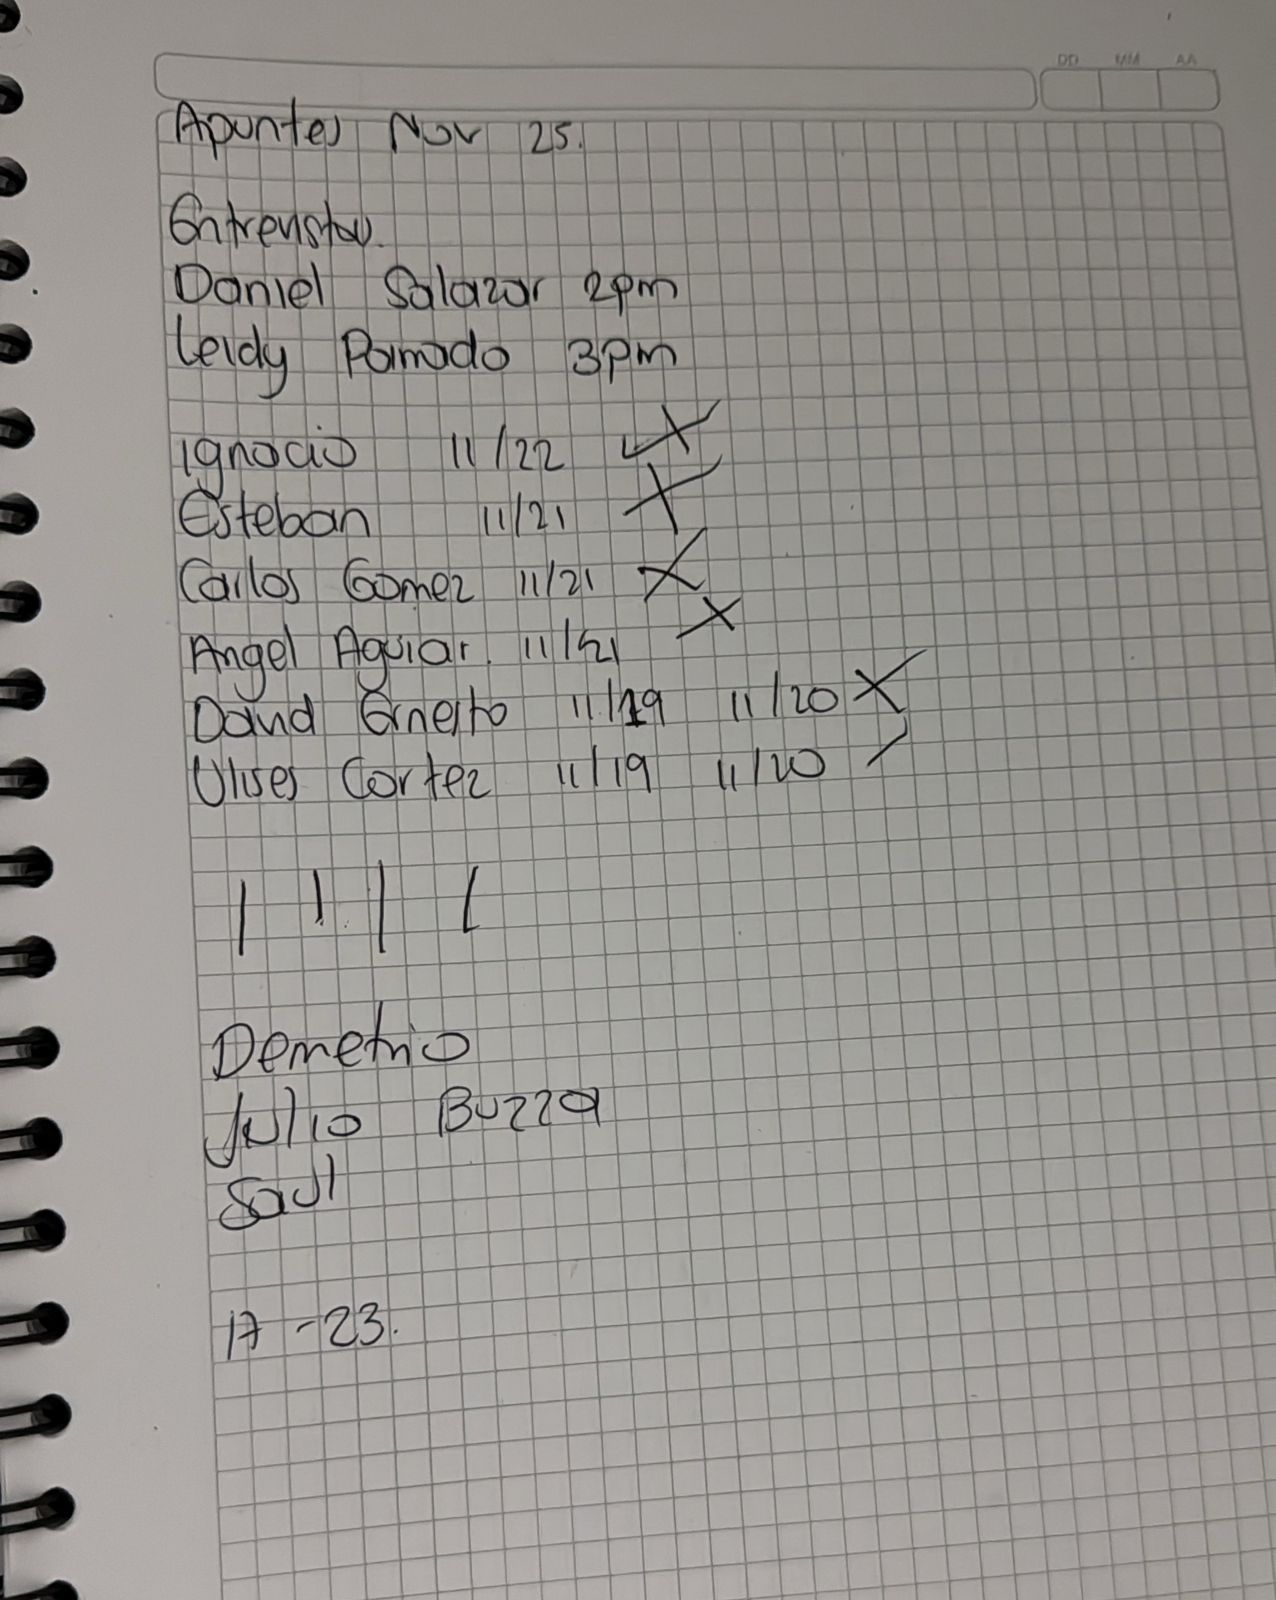 DD MM AA
Apuntes Nov 25.
Entrevistas.
Daniel Salazar 2pm
Leidy Pamado 3pm
Ignacio 11/22
Esteban 11/21
Carlos Gomez 11/21
Angel Aguiar. 11/21
David Ernesto 11/19 11/20
Ulises Cortez 11/19 11/20
Demetrio
Julio Buzza
Saul
17 - 23.